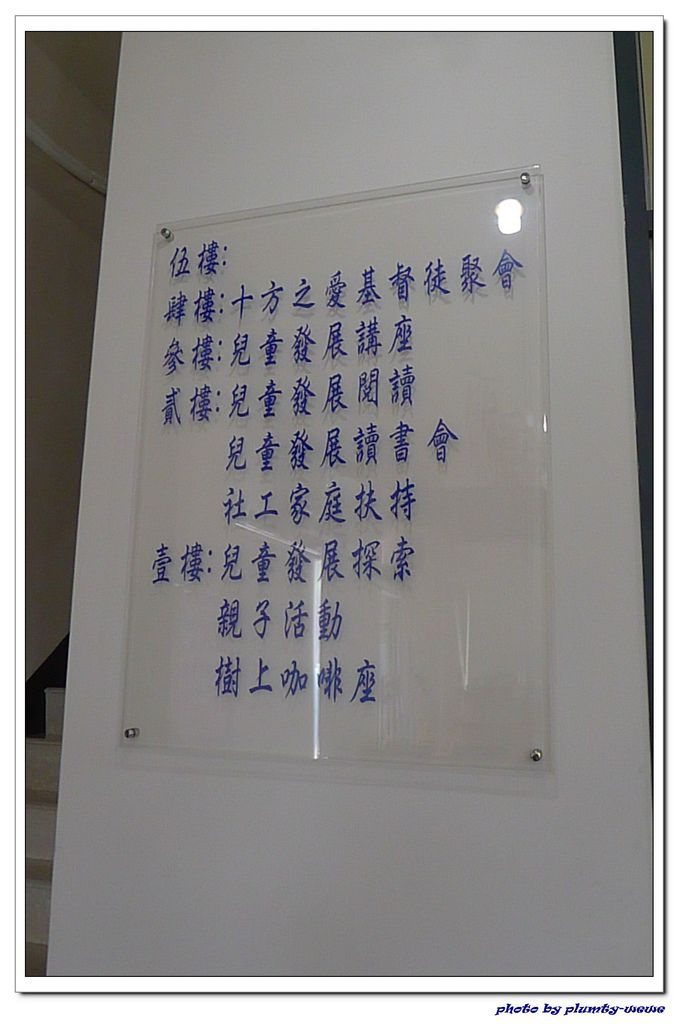 伍樓:
肆樓:十方之愛基督徒聚會
參樓:兒童發展講座
貳樓:兒童發展閱讀
兒童發展讀書會
社工家庭扶持
壹樓:兒童發展探索
親子活動
樹上咖啡座
photo by plumty-wewe